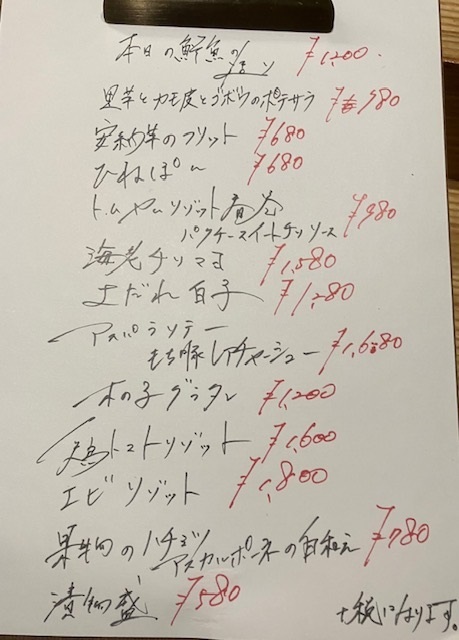 本日の鮮魚の ¥1,200
里芋とカモ皮とゴボウのポテサラ ¥980
安納芋のフリット ¥680
ひねぽん ¥680
トムヤムリゾット春巻
パクチースイートチリソース ¥980
海老チリマヨ ¥1,580
よだれ白子 ¥1,280
アスパラソテー
もち豚レアチャーシュー ¥1,680
木の子グラタン ¥1,200
鶏トマトリゾット ¥1,600
エビリゾット ¥1,800
果物のハチミツ
マスカルポーネの白和え ¥780
漬物盛 ¥580
+税になります。